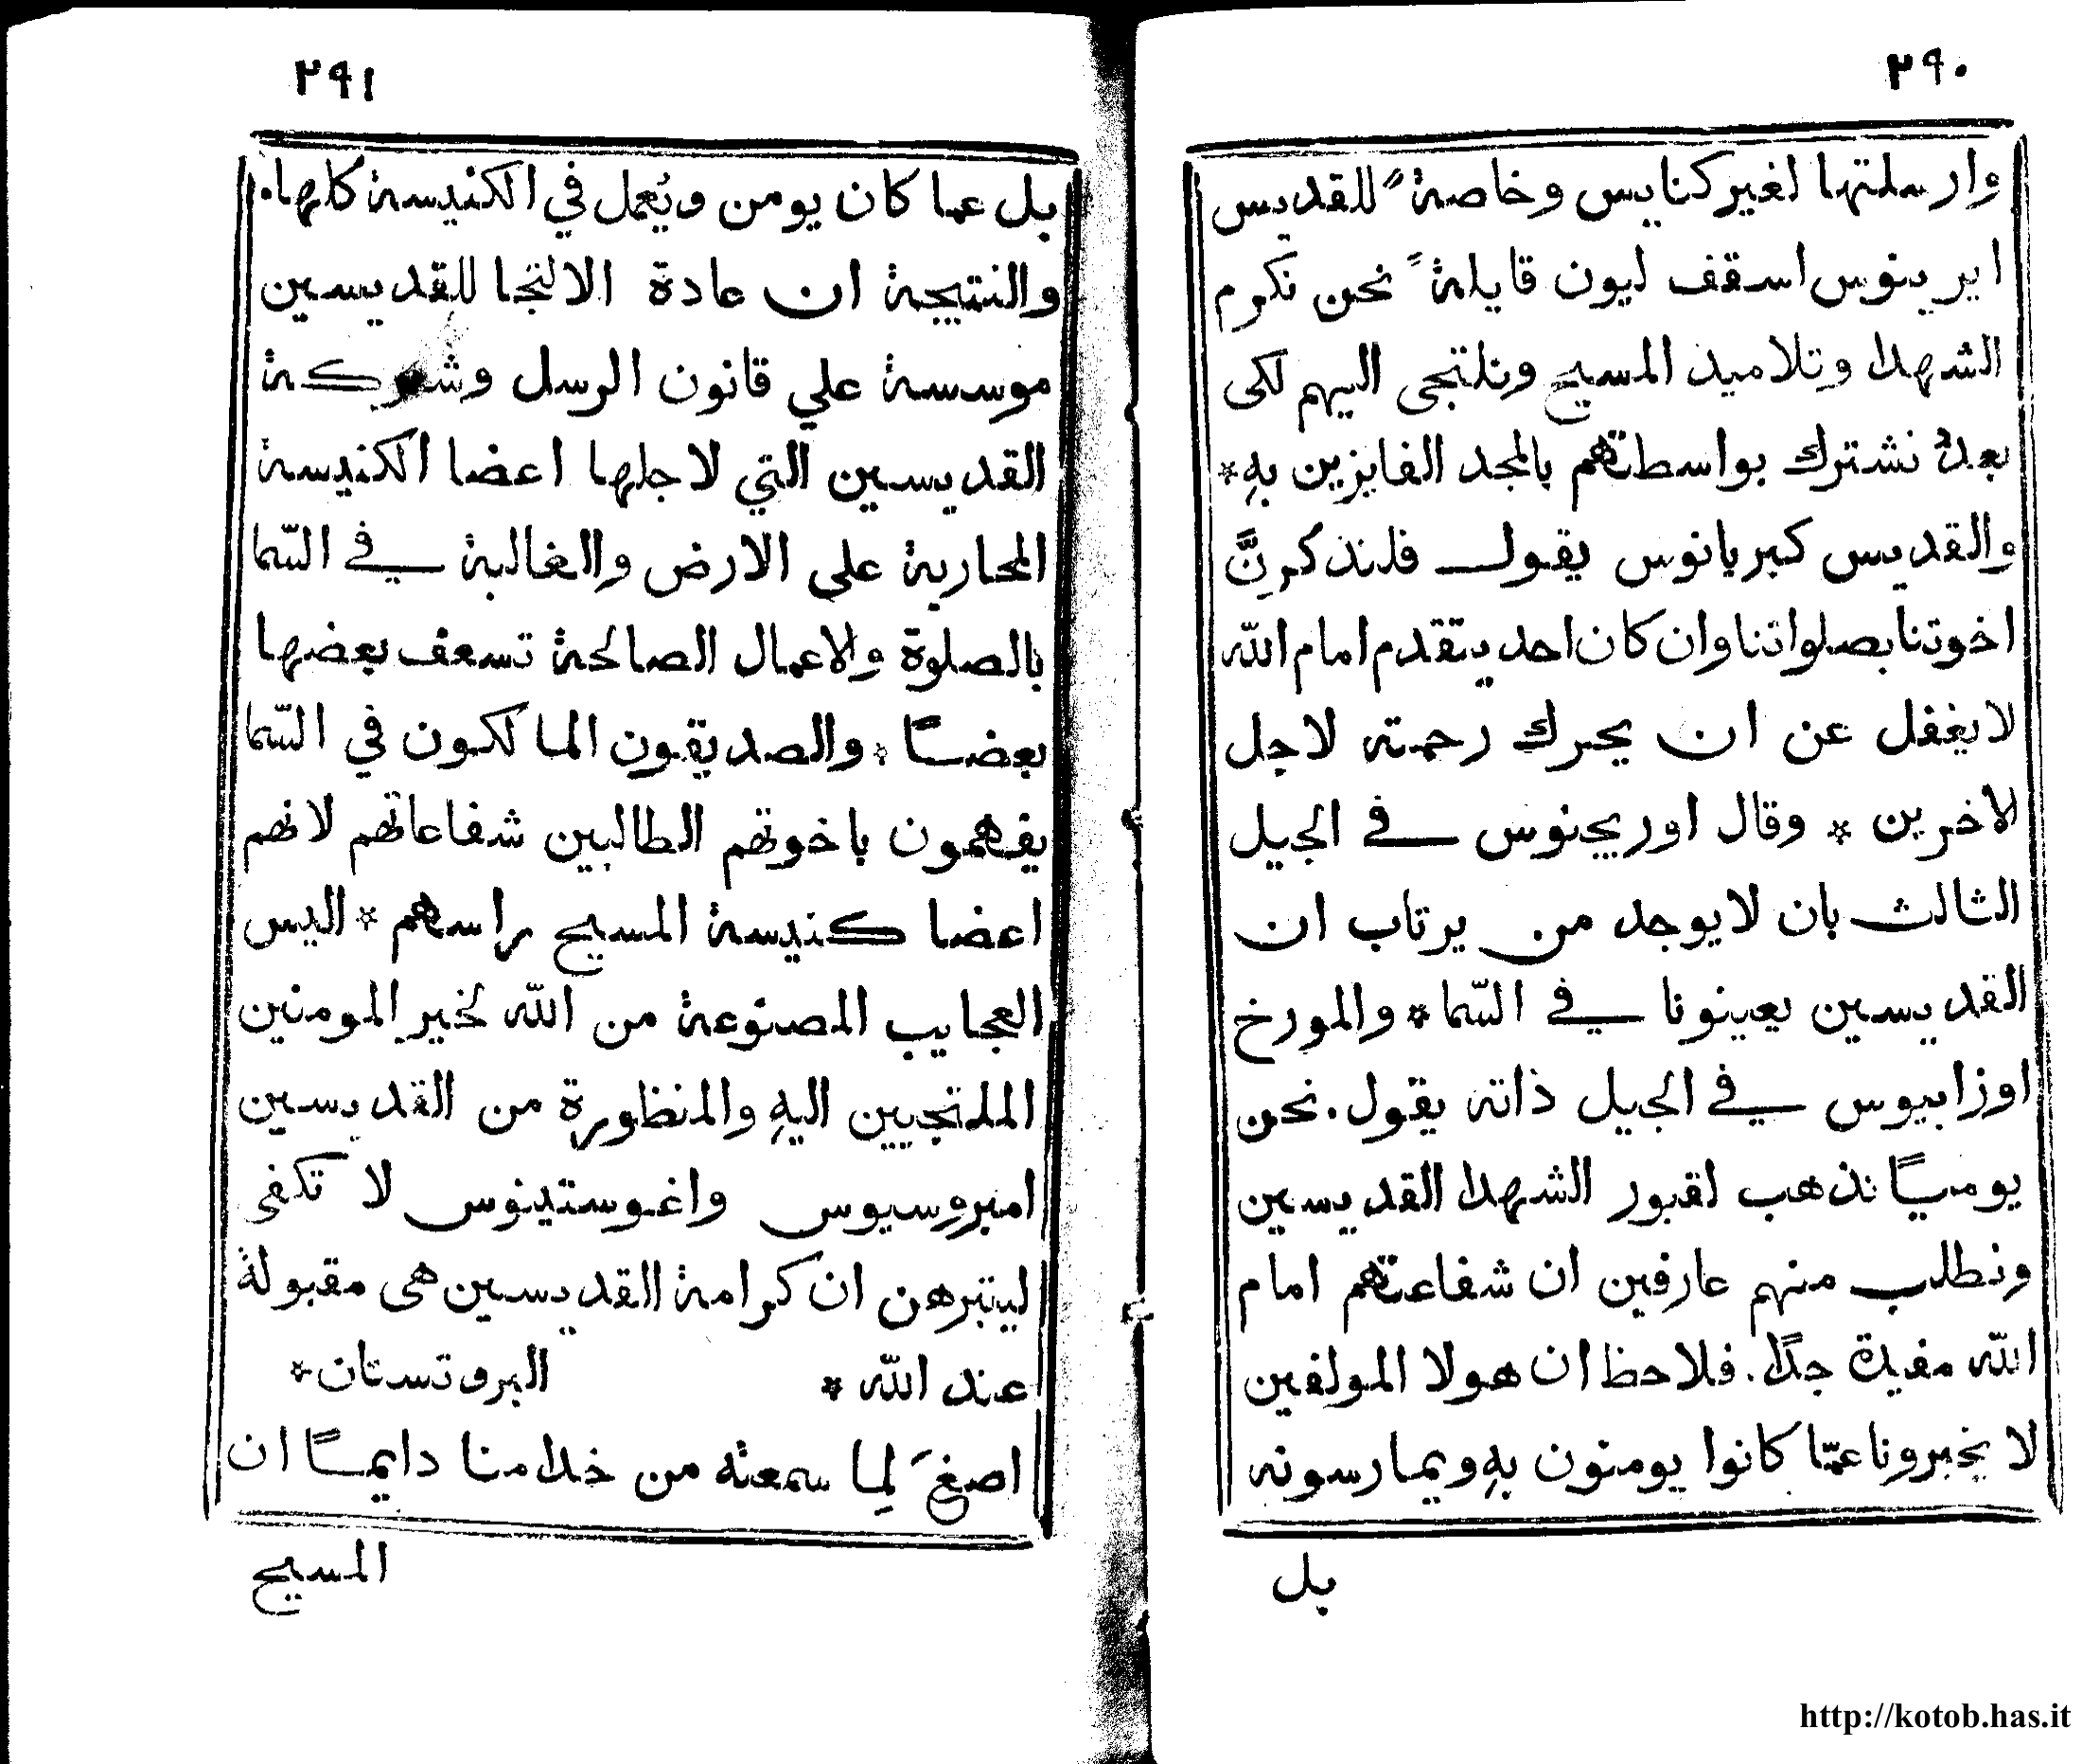 ٢٩٠
وارسلتها لغير كنايس وخاصةً للقديس
ايرينوس اسقف ليون قايلةً نحن نكرم
الشهدا وتلاميذ المسيح ونلتجى اليهم لكى
بعدهُ نشترك بواسطتهم بالمجد الفايزين بهِ *
والقديس كبريانوس يقول فلنذكرنَّ
اخوتنا بصلواتنا وان كان احد يتقدم امام الله
لا يغفل عن ان يحرك رحمته لاجل
الاخرين * وقال اوريجنوس في الجيل
الثالث بان لا يوجد من يرتاب ان
القديسين يعينونا في السّما * والمورخ
اوزابيوس في الجيل ذاته يقول . نحن
يوميًا نذهب لقبور الشهدا القديسين
ونطلب منهم عارفين ان شفاعتهم امام
الله مفيدة جدًا . فلاحظ ان هولا المولفين
لا يخبرونا عمّا كانوا يومنون بهِ ويمارسونه
بل
٢٩١
بل عما كان يومن ويُعمل في الكنيسة كلها .
والنتيجة ان عادة الالتجا للقديسين
موسسة علي قانون الرسل وشركة
القديسين التي لاجلها اعضا الكنيسة
المحاربة علي الارض والغالبة في السّما
بالصلوة والاعمال الصالحة تسعف بعضها
بعضًا * والصديقون المالكون في السّما
يفهمون باخوتهم الطالبين شفاعاتهم لانهم
اعضا كنيسة المسيح راسهم * اليس
العجايب المصنوعة من الله لخير المومنين
الملتجيين اليهِ والمنظورة من القديسين
امبروسيوس واغوستينوس لا تكفى
ليتبرهن ان كرامة القديسين هى مقبولة
عند الله * البروتستان *
اصغَ لِما سمعته من خدامنا دايمًا ان
المسيح
http://kotob.has.it